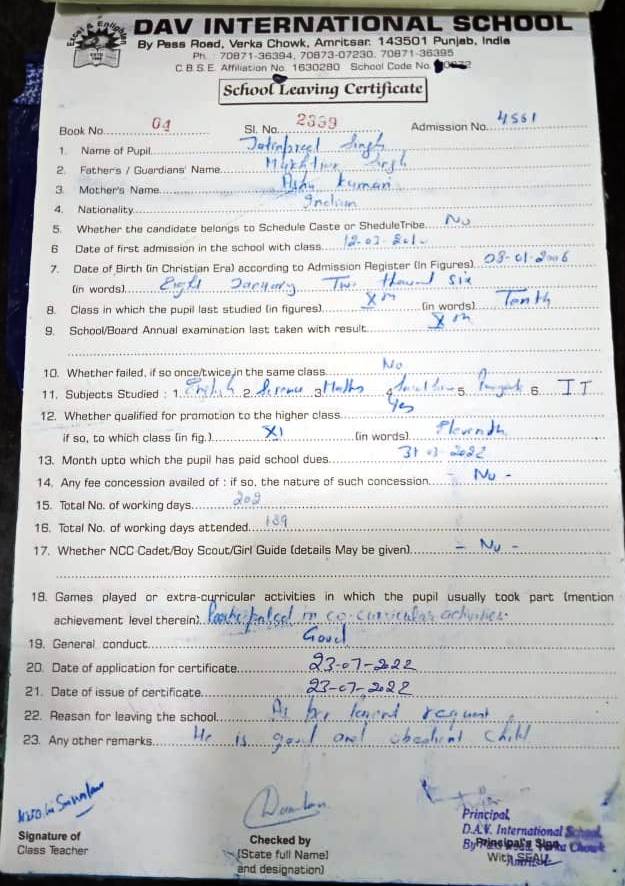 DAV INTERNATIONAL SCHOOL
By Pass Road, Verka Chowk, Amritsar. 143501 Punjab, India
Ph. : 70871-36394, 70873-07230, 70871-36395
C.B.S.E. Affiliation No. 1630280 School Code No.
School Leaving Certificate
Book No. 04 Sl. No. 2339 Admission No. 4561
1. Name of Pupil Jatinpreet Singh
2. Father's / Guardians' Name Singh
3. Mother's Name Ashu Kumari
4. Nationality Indian
5. Whether the candidate belongs to Schedule Caste or SheduleTribe No
6 Date of first admission in the school with class
7. Date of Birth (in Christian Era) according to Admission Register (In Figures) 08-01-2006
(in words) Eight January Two thousand six
8. Class in which the pupil last studied (in figures) Xth (in words) Tenth
9. School/Board Annual examination last taken with result Xth
10. Whether failed, if so once/twice in the same class No
11. Subjects Studied : 1. English 2. Science 3 Maths 4 5 6 IT
12. Whether qualified for promotion to the higher class Yes
if so, to which class (in fig.) XI (in words) Eleventh
13. Month upto which the pupil has paid school dues 31 03 2022
14. Any fee concession availed of : if so, the nature of such concession - No -
15. Total No. of working days 202
16. Total No. of working days attended 189
17. Whether NCC Cadet/Boy Scout/Girl Guide (details May be given) - No -
18. Games played or extra-curricular activities in which the pupil usually took part (mention
achievement level therein) Participated in co-curricular activities.
19. General conduct Good
20. Date of application for certificate 23-07-2022
21. Date of issue of certificate 23-07-2022
22. Reason for leaving the school As per request
23. Any other remarks He is good and obedient child
Signature of
Class Teacher
Checked by
(State full Name)
and designation)
Principal
D.A.V. International School
Principal's Sign
With SEAL